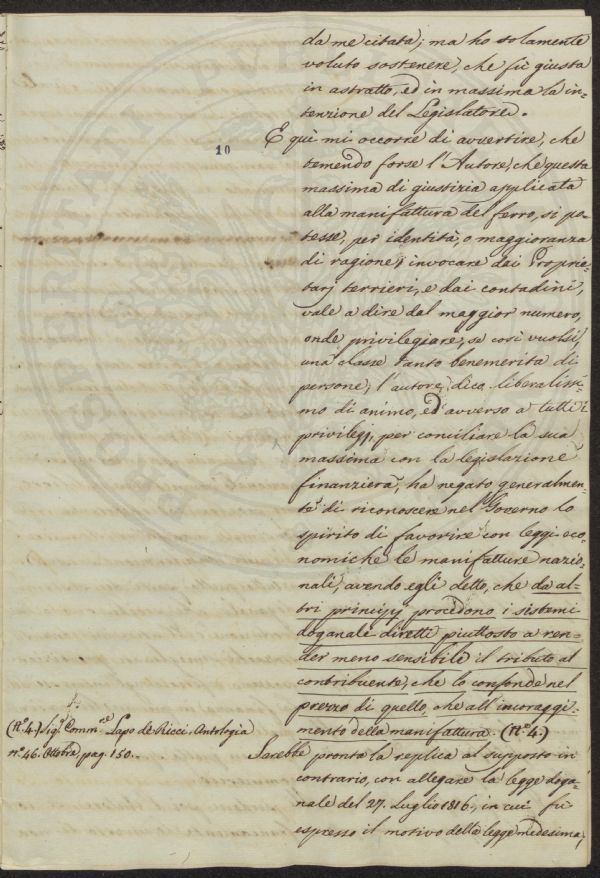 da me citata; ma ho solamente
voluto sostenere, che fù giusta
in astratto, ed in massima la in=
tenzione del Legislatore.
10
E quì mi occorre di avvertire, che
temendo forse l'Autore, che questa
massima di giustizia applicata
alla manifattura del ferro, si po=
tesse, per identità, o maggioranza
di ragione, invocare dai Proprie=
tarj terrieri, e dai contadini,
vale a dire dal maggior numero,
onde privilegiare, se così vuolsi,
una classe tanto benemerita di
persone; l'autore, dico, liberalissi=
mo di animo, ed avverso a tutti i
privilegj, per conciliare la sua
massima con la legislazione
finanziera, ha negato generalmen=
te di riconoscere nel Governo lo
spirito di favorire con leggi eco=
nomiche le manifatture nazio=
nali, avendo egli detto, che da al=
tri principj procedono i sistemi
doganali diretti piuttosto a ren=
der meno sensibile il tributo al
contribuente, che lo confonde nel
prezzo di quello, che all'incoraggi=
mento della manifattura. (N.° 4.)
(N.° 4.) Sig.r Comm.re Lapo de Ricci, Antologia
n.° 46. Ottobre, pag. 150.
Sarebbe pronta la replica al supposto in
contrario, con allegare la legge doga=
nale del 27. Luglio 1816., in cui fù
espresso il motivo della legge medesima,